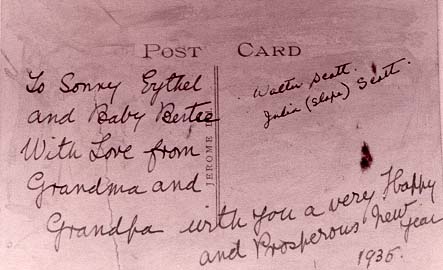 POST CARD
To Sonny Erythel
and Baby Bertie
With Love from
Grandma and
Grandpa with you a very Happy
and Prosperous New
Year
1935.
Walter Scott.
Julia (Slape) Scott.
JEROME